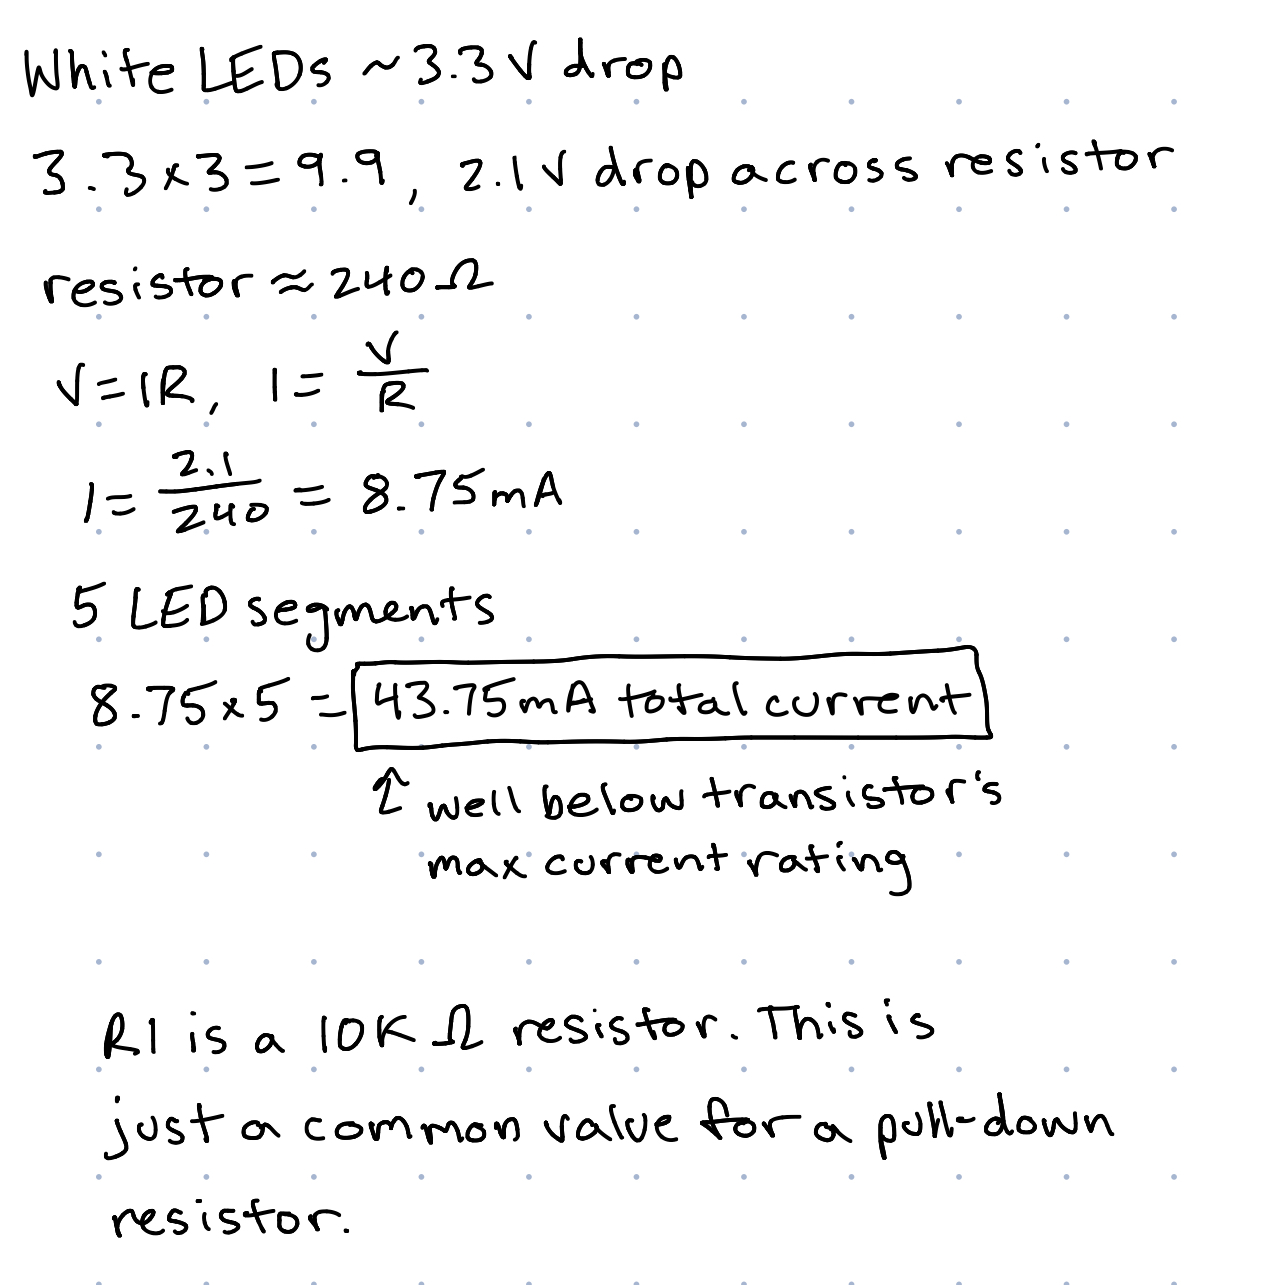 White LEDs ~3.3V drop
3.3×3=9.9, 2.1V drop across resistor
resistor ≈ 240Ω
V=IR, I= V/R
I= 2.1/240 = 8.75mA
5 LED segments
8.75×5 = 43.75mA total current
↑ well below transistor's
max current rating
R1 is a 10K Ω resistor. This is
just a common value for a pull-down
resistor.